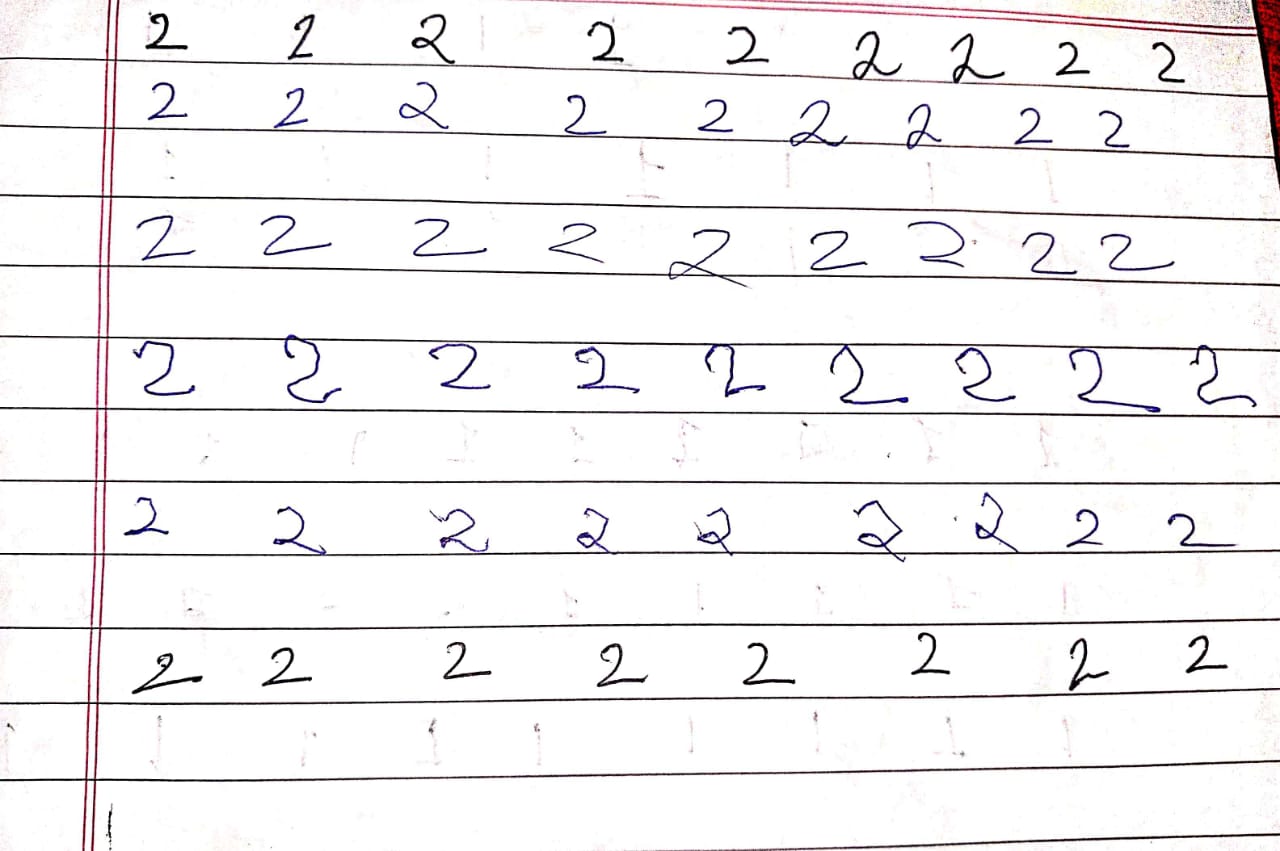 2 2 2 2 2 2 2 2 2
2 2 2 2 2 2 2 2 2
2 2 2 2 2 2 2 2 2
2 2 2 2 2 2 2 2 2
2 2 2 2 2 2 2 2 2
2 2 2 2 2 2 2 2